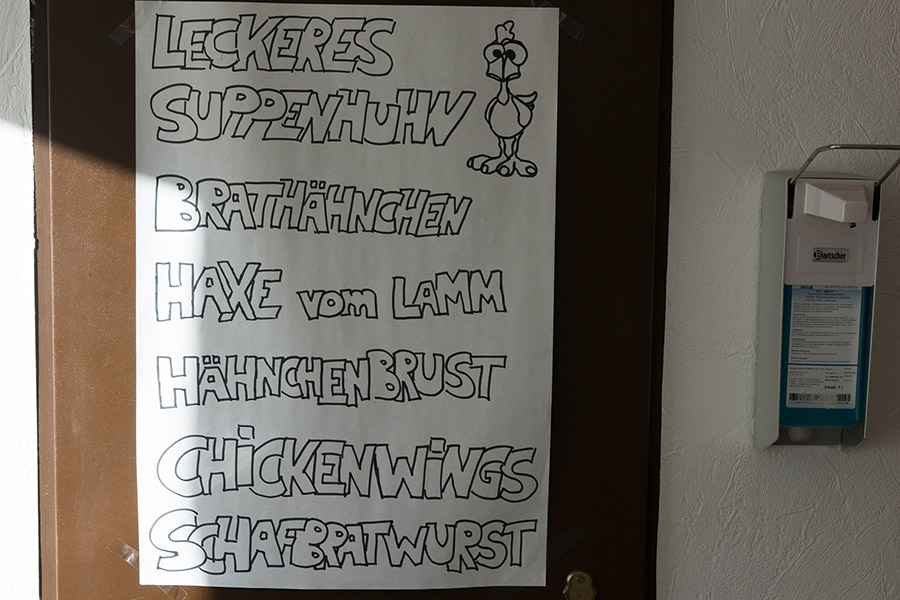 LECKERES
SUPPENHUHN
BRATHÄHNCHEN
HAXE vom LAMM
HÄHNCHENBRUST
CHiCKENWiNGS
SCHAFBRATWURST
Bartscher